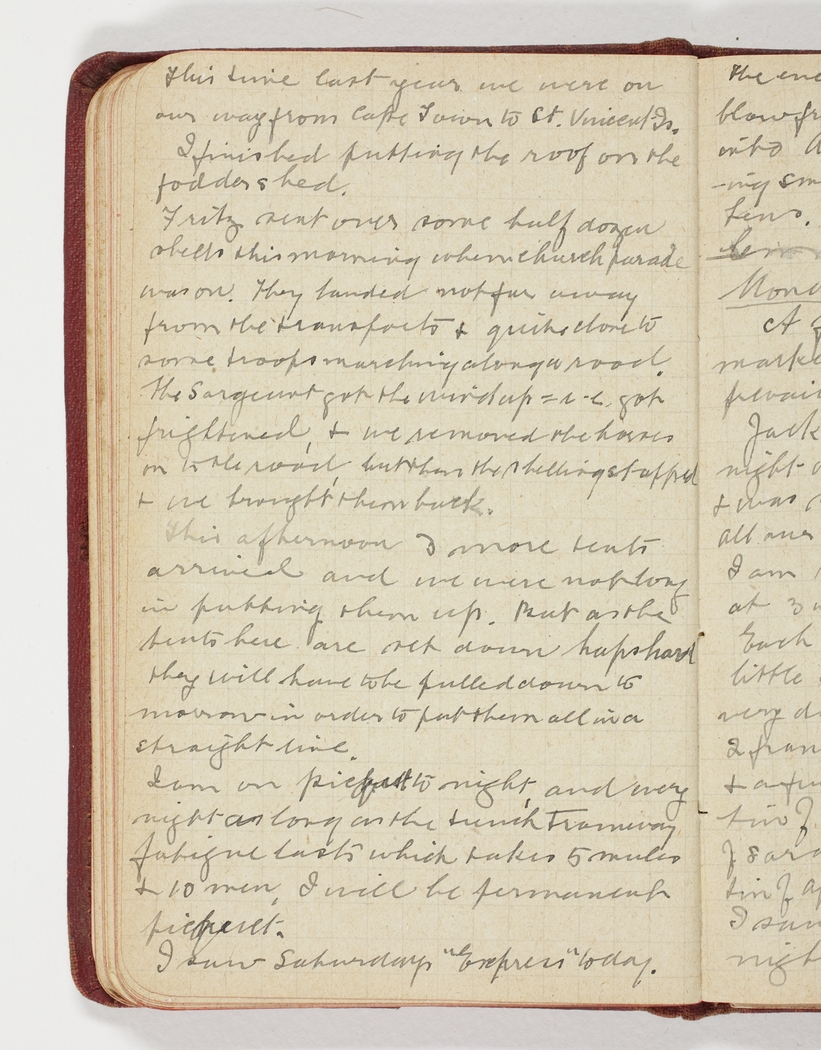 This time last year we were on
our way from Cape Town to St. Vincent Is.
I finished putting the roof on the
fodder shed.
Fritz sent over some half dozen
shells this morning when church parade
was on. They landed not far away
from the transports & quite close to
some troops marching along a road.
The Sargeant got the wind up = i.e. got
frightened, & we removed the horses
on to the road, but then the shelling stopped
& we brought them back.
This afternoon 3 more tents
arrived and we were not long
in putting them up. But as the
tents here are set down haphazard
they will have to be pulled down to
morrow in order to put them all in a
straight line.
I am on picquet to night, and every
night as long as the trench Tramway
fatigue lasts which takes 5 mules
& 10 men, I will be permanent
picquet.
I saw Saturdays "Express" today.
The
into
-ing
tens.
A
Jack
night
& was
all over
I am
at 3
Each
little
very
2
&
tin
I saw
night